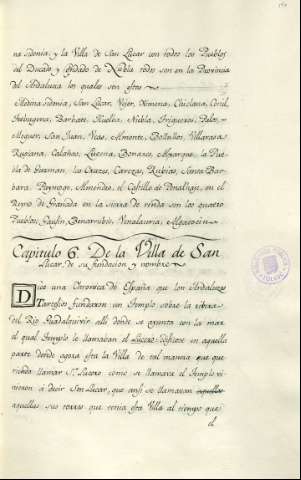 na Sidonia y la Villa de San Lucar con todos los Pueblos
del Ducado y Condado de Niebla todos son en la Provincia
del Andaluzia los quales son estos
Medina Sidonia, San Lucar, Vejer, Ximena, Chiclana, Conil,
Barbate, Huelva, Niebla, Trigueros, Palos,
Moguer, San Juan, Veas, Almonte, Bollullos, Villarasa,
Ruciana, Calañas, Lucena, Bonares, la Pue-
bla de Guzman, las Cruzes, Rubias, Santa Bar-
bara, Paymogo, Almendro, el Castillo de en el
Reyno de Granada en la Sierra de ronda son los quatro
Pueblos, Gausin, Benarraba, Algatocin
Capitulo 6. De la Villa de San
Lucar, de su fundacion y nombre
Dice una Chronica de España que los Andaluzes
Tartesios fundaron un templo sobre la ribera
del Rio Guadalquivir alli donde se ajunta con la mar
el qual templo le llamaban el Lucero edificose en aquella
parte donde agora esta la Villa de tal manera que que
riendo llamar Sn. Lucero como se llamava el templo vi-
nieron à decir Sn Lucar, que ansi se llamavan aquellas
aquellas sus torres que tenia esta Villa al tiempo que
el